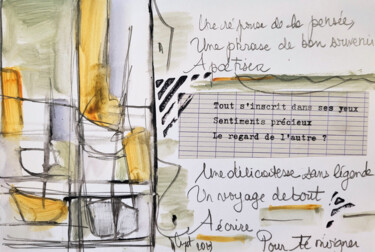 Une reprise de la pensée,
Une phrase de bon souvenir
A
Tout s'inscrit dans ses yeux
Sentiments précieux
Le regard de l'autre ?
Une délicatesse sans légende
Un voyage debout !
A écrire
Sept 2019 Pour te